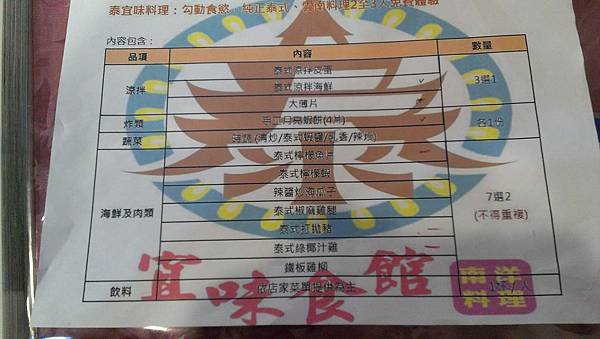 泰宜味料理：勾動食慾 純正泰式、雲南料理2至3人免費體驗
內容包含：
品項 內容 數量
涼拌 泰式涼拌皮蛋 3選1
泰式涼拌海鮮
大薄片
炸類 手工月亮蝦餅(4片) 各1份
蔬菜 時蔬(清炒/泰式蝦醬/乳香/辣炒)
海鮮及肉類 泰式檸檬魚片 7選2
(不得重複)
泰式檸檬蝦
辣醬炒海瓜子
泰式椒麻雞腿
泰式打拋豬
泰式綠椰汁雞
鐵板雞柳
飲料 依店家菜單提供為主 1杯/人
宜味食館
南洋
料理